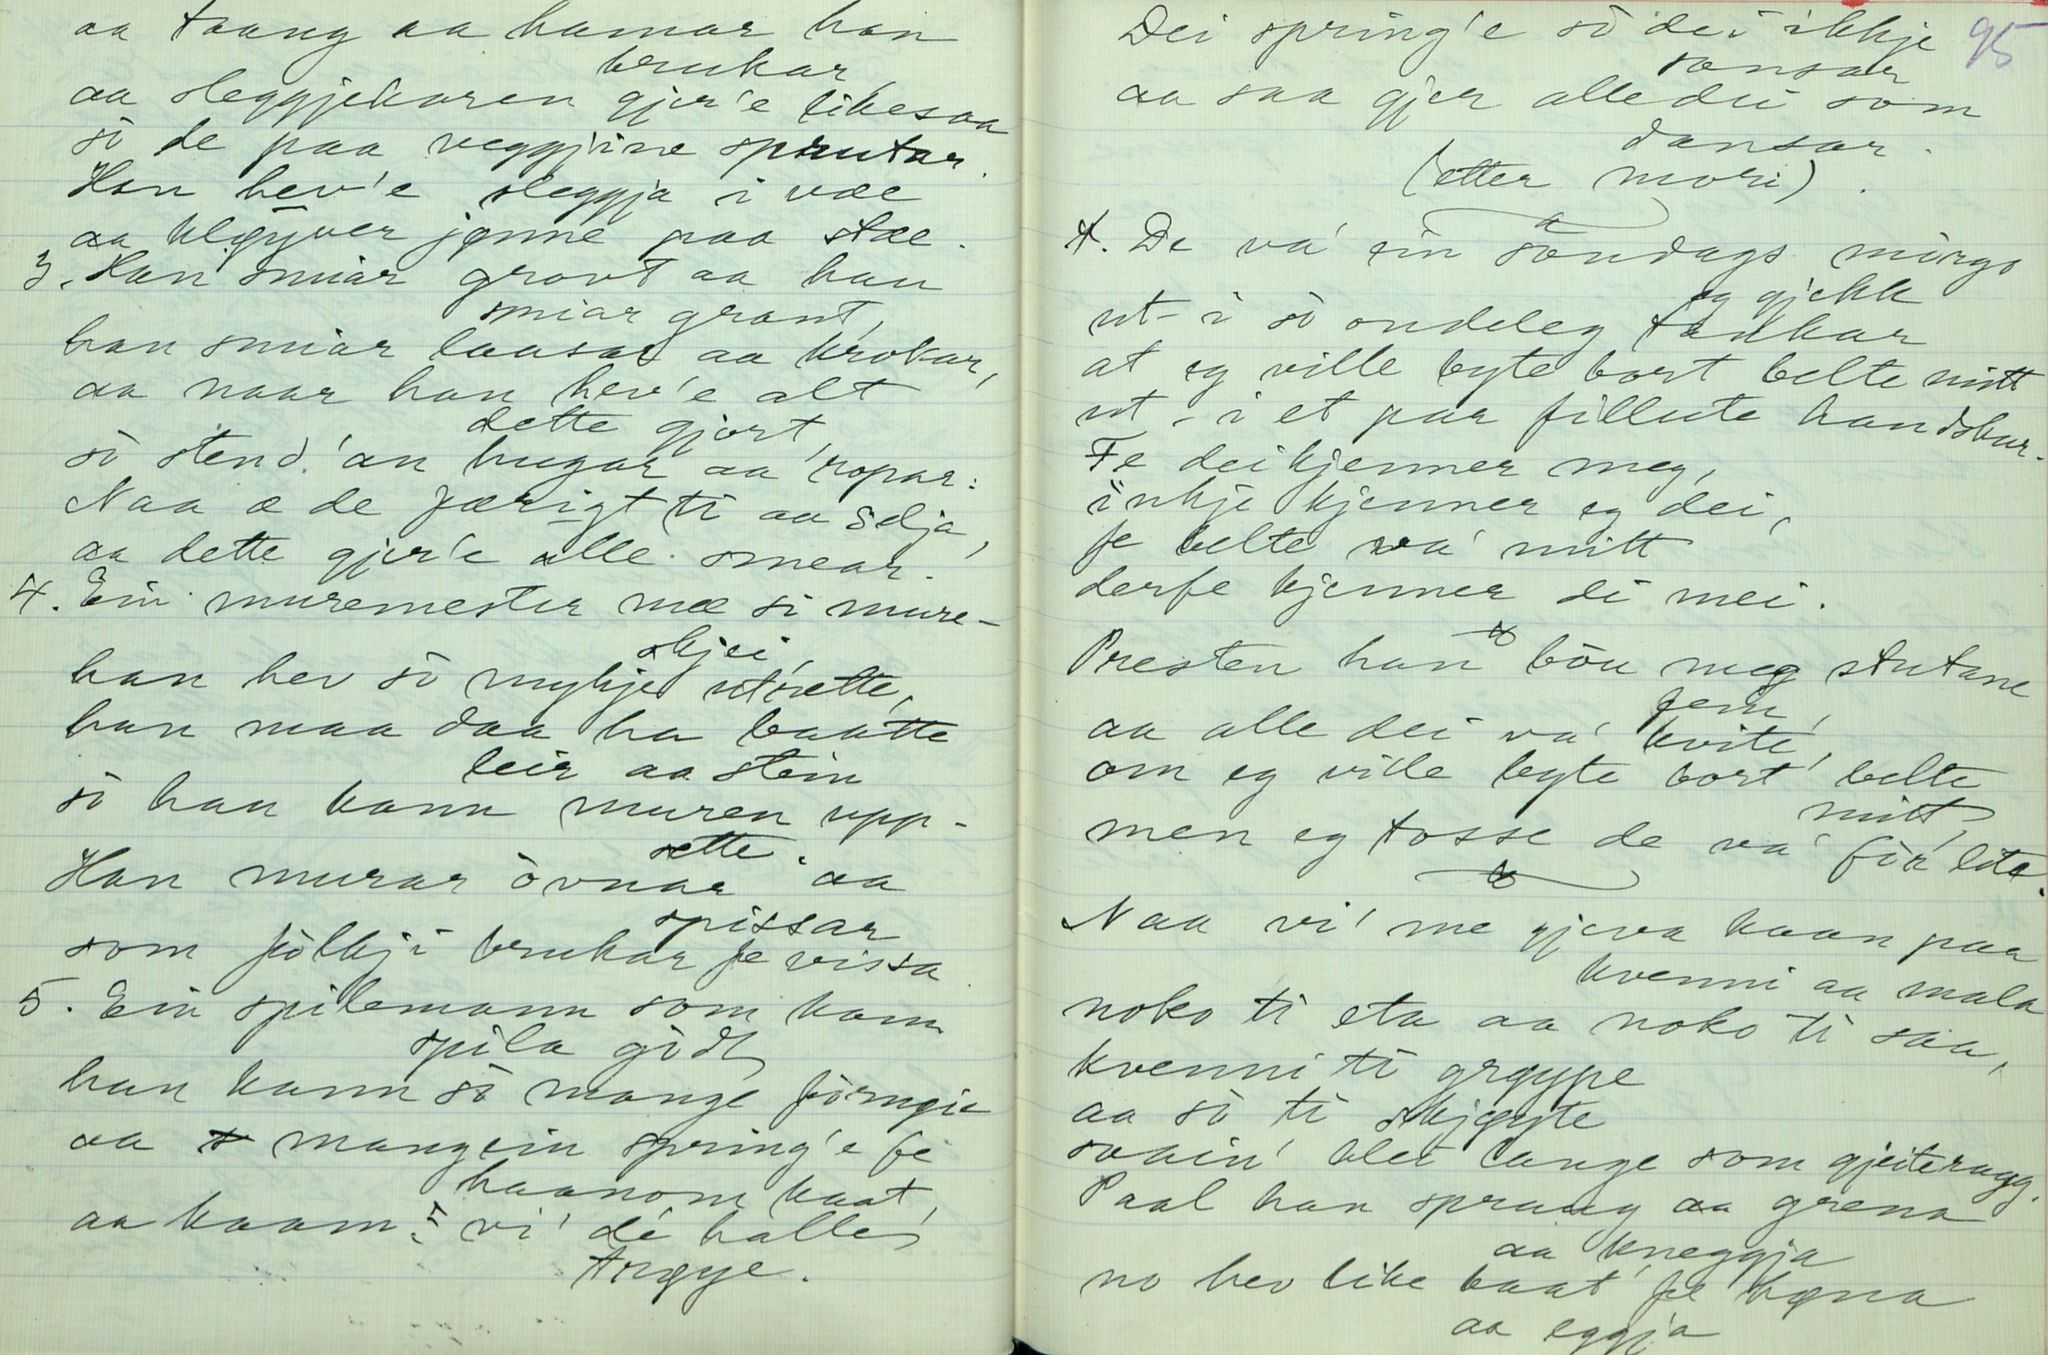 aa taang aa hamar han
brukar
aa sleggjekaren gjer'e likesaa
sò de paa veggjine sprutar.
Han hev'e sleggja i væe
aa kløyver jønne paa stæe.
3. Han smiar grovt aa han
smiar grant,
han smiar laasar aa krokar,
aa naar han hev'e alt
dette gjort,
sò stend'an hugar aa ropar:
Naa æ de færigt ti aa selja,
aa dette gjer'e alle smear.
4. Ein muremester mæ si mure-
skjei,
han hev sò mykje utrette,
han maa daa ha baatte
leir aa stein
sò han kann muren upp-
sette.
Han murar òvnar aa
spissar
som fòlkji brukar fe vissa
5. Ein spilemann som kann
spila gòdt,
han kann sò mange fòrnøie
aa mangein spring'e fe
haanom kaat,
aa kaam: vi' de halle
trøye.
Dei spring'e sò dei ikkje
sansar
aa saa gjer alle dei som
dansar.
(etter mori).
95
t. De va' ein søndags mòrgo
eg gjekk
ut-i sò ondeleg tankar
at eg ville byte bort belte mitt
ut-i et par fillute handskar.
Fe dei kjenner meg,
inkje kjenner eg dei,
fe belte va' mitt
derfe kjenner di mei.
Presten han bòu meg stutane
fem,
aa alle dei va' kvite,
om eg ville byte bort belte
mitt,
men eg tosse de va' fòr lite.
Naa vi' me gjeva kaan paa
kvenni aa mala
noko ti eta aa noko ti saa,
kvenni ti grøype
aa sò ti skjøyte
svain' blei lange som gjeiteragg.
Paal han sprang aa grena
aa kneggja
no hev like baat' fe høna
aa eggja